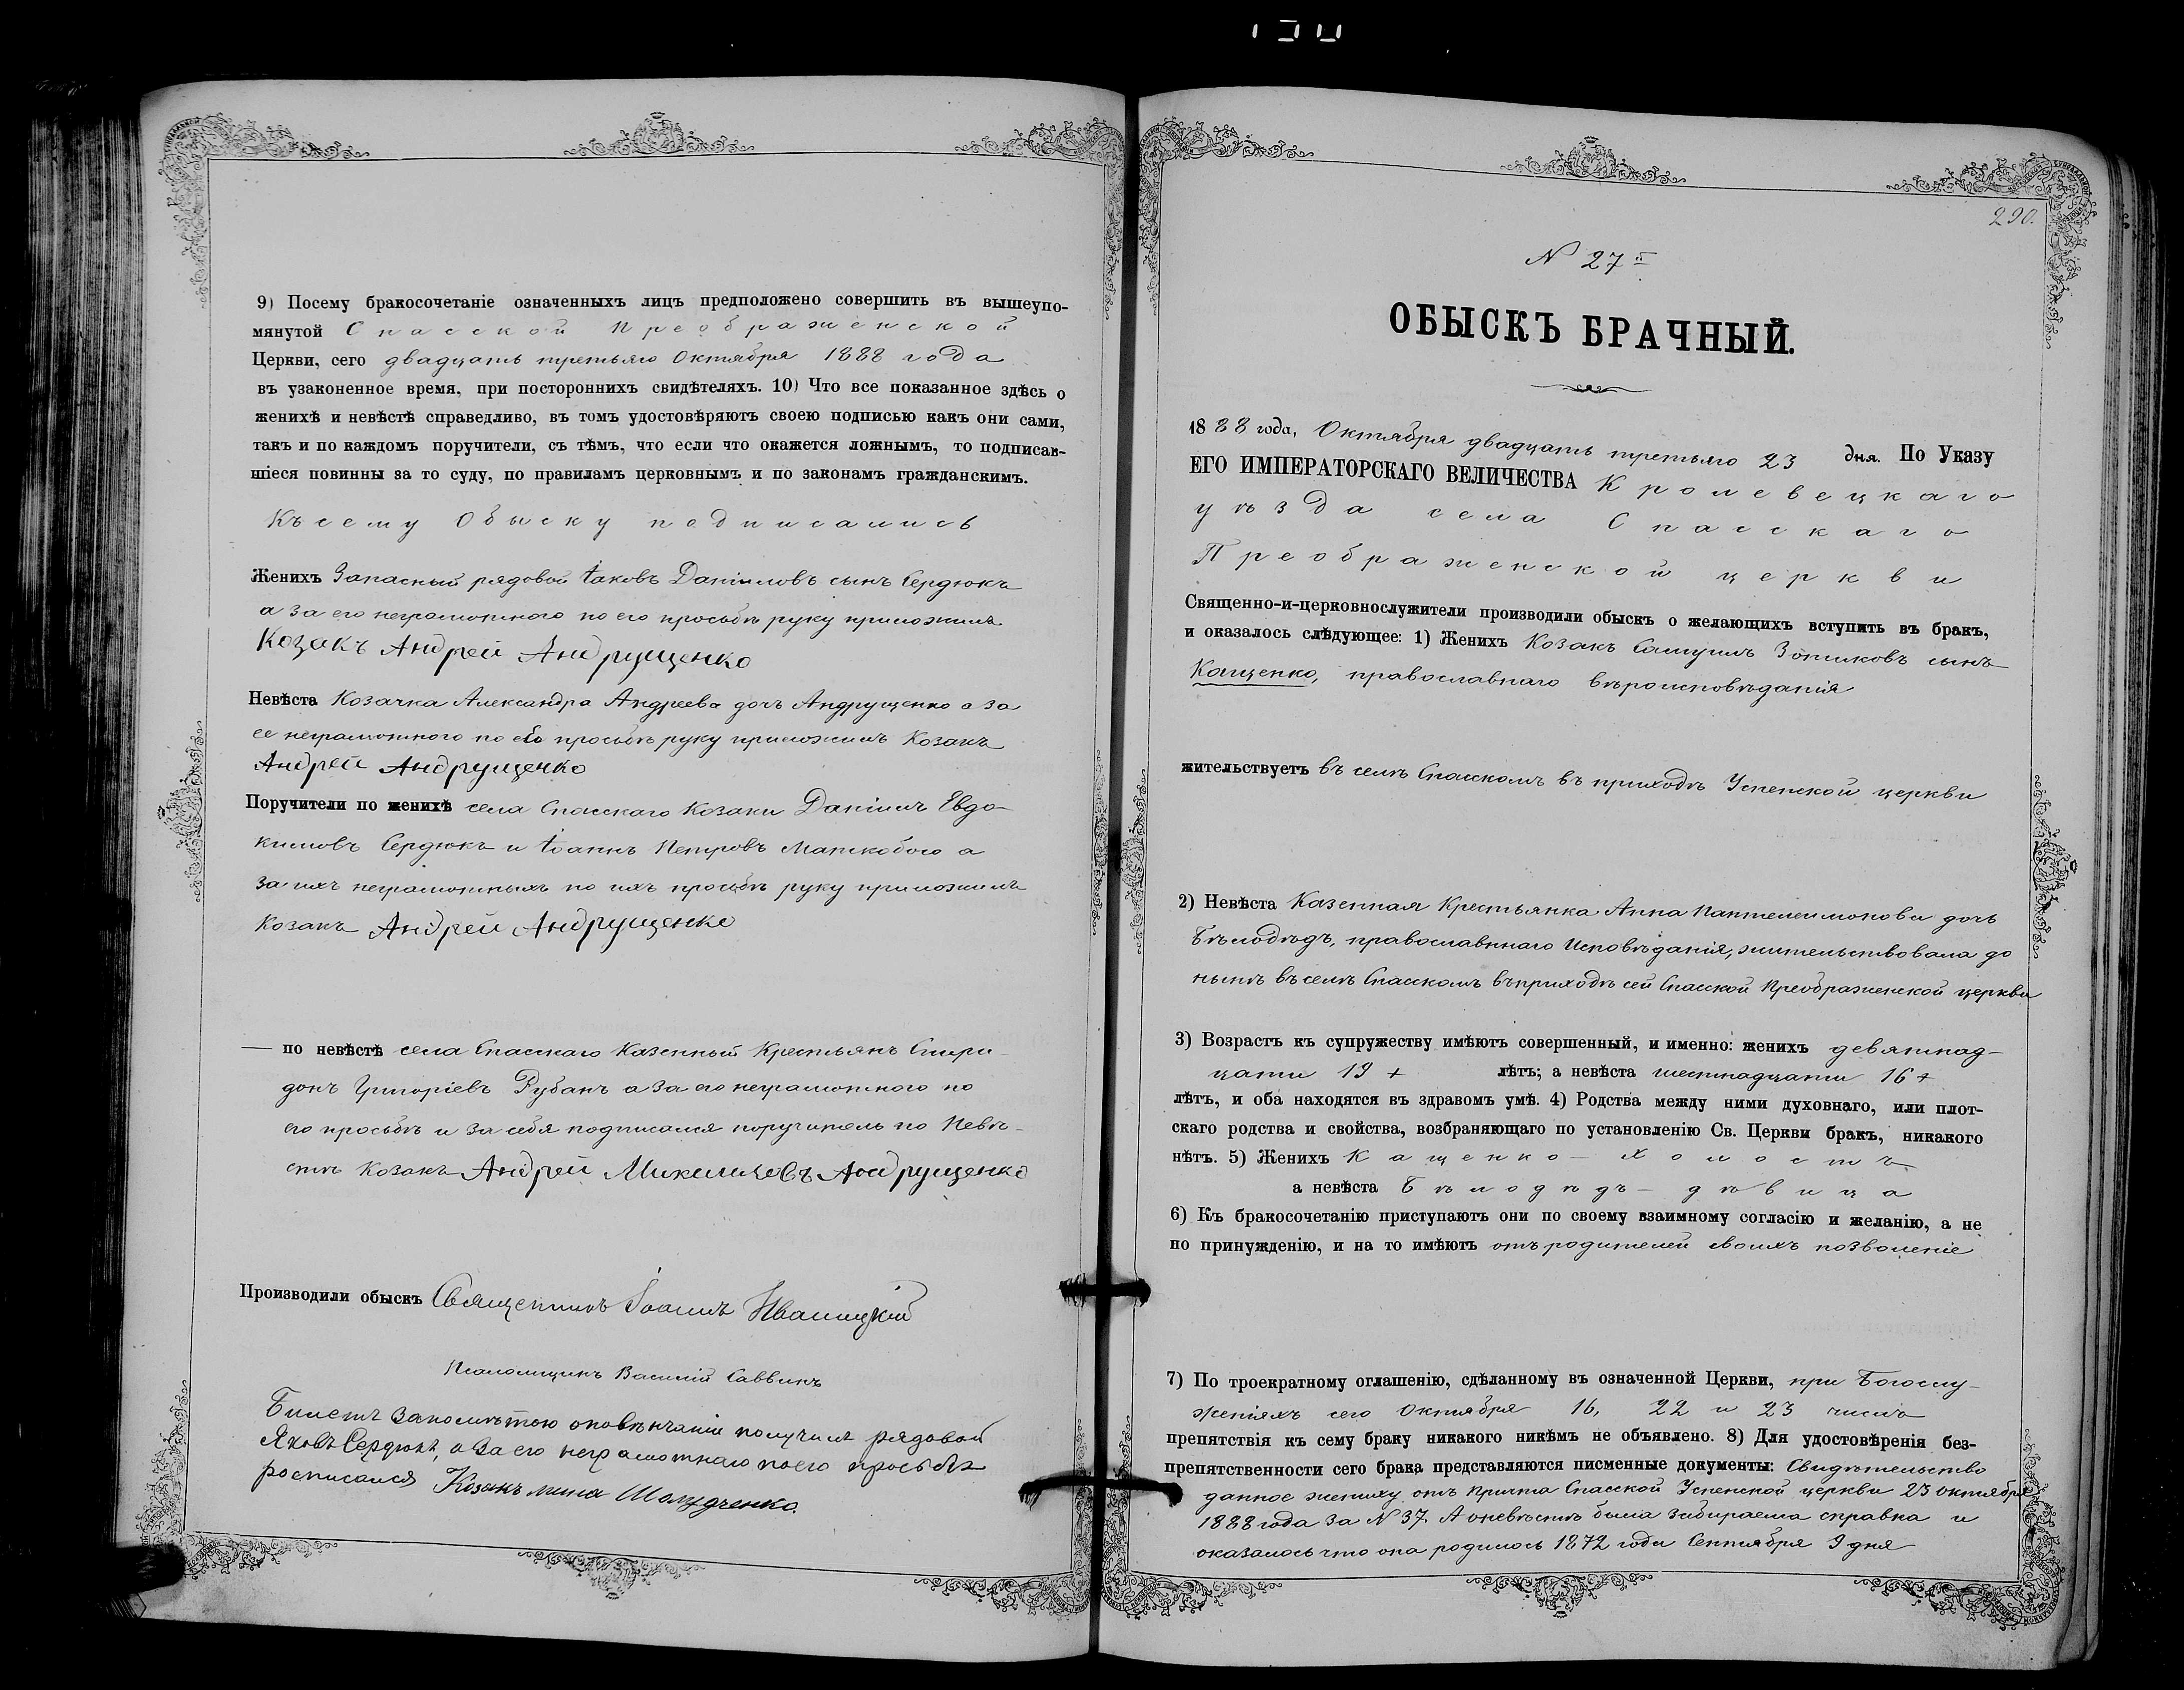 9) Посему бракосочетаніе означенныхъ лицъ предположено совершить въ вышеупо-
мянутой Спасской Преображенской
Церкви, сего двадцать третьяго Октября 1888 года
въ узаконенное время, при постороннихъ свидѣтеляхъ. 10) Что все показанное здѣсь о
женихѣ и невѣстѣ справедливо, въ томъ удостовѣряютъ своею подписью какъ они сами,
такъ и по каждомъ поручители, съ тѣмъ, что если что окажется ложнымъ, то подписав-
шіеся повинны за то суду, по правиламъ церковнымъ и по законамъ гражданскимъ.
Къ сему Обыску подписались
Женихъ Запасный рядовой Іаковъ Даніиловъ сынъ Сердюкъ
а за его неграмотного по его просьбѣ руку приложилъ
Козакъ Андрей Андрущенко
Невѣста Козачка Александра Андреева дочь Андрущенко а за
ее неграмотного по ею просьбѣ руку приложилъ Козакъ
Андрей Андрущенко
Поручители по женихѣ села Спасскаго Козаки Даніилъ Евдо-
кимовъ Сердюкъ и Іоаннъ Петровъ а
за ихъ неграмотныхъ по ихъ просьбѣ руку приложилъ
Козакъ Андрей Андрущенко
— по невѣстѣ села Спасскаго Казенный Крестьянъ Спири-
донъ Григоріевъ Рубанъ а за его неграмотного по
его просьбѣ и за себя подписался поручитель по Невѣ-
стѣ Козакъ Андрей Андрущенко
Производили обыскъ Священникъ Іоаннъ Иваницкій
Псаломщикъ Василій Саввинъ
Билетъ заполмѣтою оповѣнчаніи получилъ рядовой
Яковъ Сердюкъ, а за его неграмотнаго поего просьбѣ
росписался Козакъ Мина
290.
N 27й
ОБЫСКЪ БРАЧНЫЙ.
1888 года, Октября двадцать третьяго 23 дня. По Указу
ЕГО ИМПЕРАТОРСКАГО ВЕЛИЧЕСТВА Кролевецкаго
уѣзда села Спасскаго
Преображенской церкви
Священно-и-церковнослужители производили обыскъ о желающихъ вступить въ бракъ,
и оказалось слѣдующее: 1) Женихъ Козакъ Самуилъ Зотиковъ сынъ
Кащенко, православнаго вѣроисповѣданія
жительствуетъ въ селѣ Спасскомъ въ приходѣ Успенской церкви
2) Невѣста Казенная Крестьянка Анна Пантелеимонова дочь
Бѣлодѣдъ, православннаго Исповѣданія, жительствовала до
нынѣ въ селѣ Спасскомъ въ приходѣ сей Спасской Преображенской церкви
3) Возрастъ къ супружеству имѣютъ совершенный, и именно: женихъ девятнад-
цати 19 + лѣтъ; а невѣста шестнадцати 16 +
лѣтъ, и оба находятся въ здравомъ умѣ. 4) Родства между ними духовнаго, или плот-
скаго родства и свойства, возбраняющаго по установленію Св. Церкви бракъ, никакого
нѣтъ. 5) Женихъ Кащенко — холостъ
а невѣста Бѣлодѣдъ — дѣвица
6) Къ бракосочетанію приступаютъ они по своему взаимному согласію и желанію, а не
по принужденію, и на то имѣютъ отъ родителей своихъ позволеніе
7) По троекратному оглашенію, сдѣланному въ означенной Церкви, при Богослу-
женіяхъ сего Октября 16, 22 и 23 числъ
препятствія къ сему браку никакого никѣмъ не объявлено. 8) Для удостовѣренія без-
препятственности сего брака представляются писменные документы: Свидѣтельство
данное жениху отъ причта Спасской Успенской церкви 23 октября
1888 года за N 37. А оневѣстѣ была забираема справка и
оказалось что она родилось 1872 года Сентября 9 дня